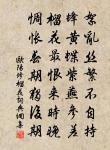 絮亂絲繁不自持
蜂黃蝶紫燕參差
榴花最恨來時晚
惆悵春期獨後期
歐陽修榴花詩詞典網書